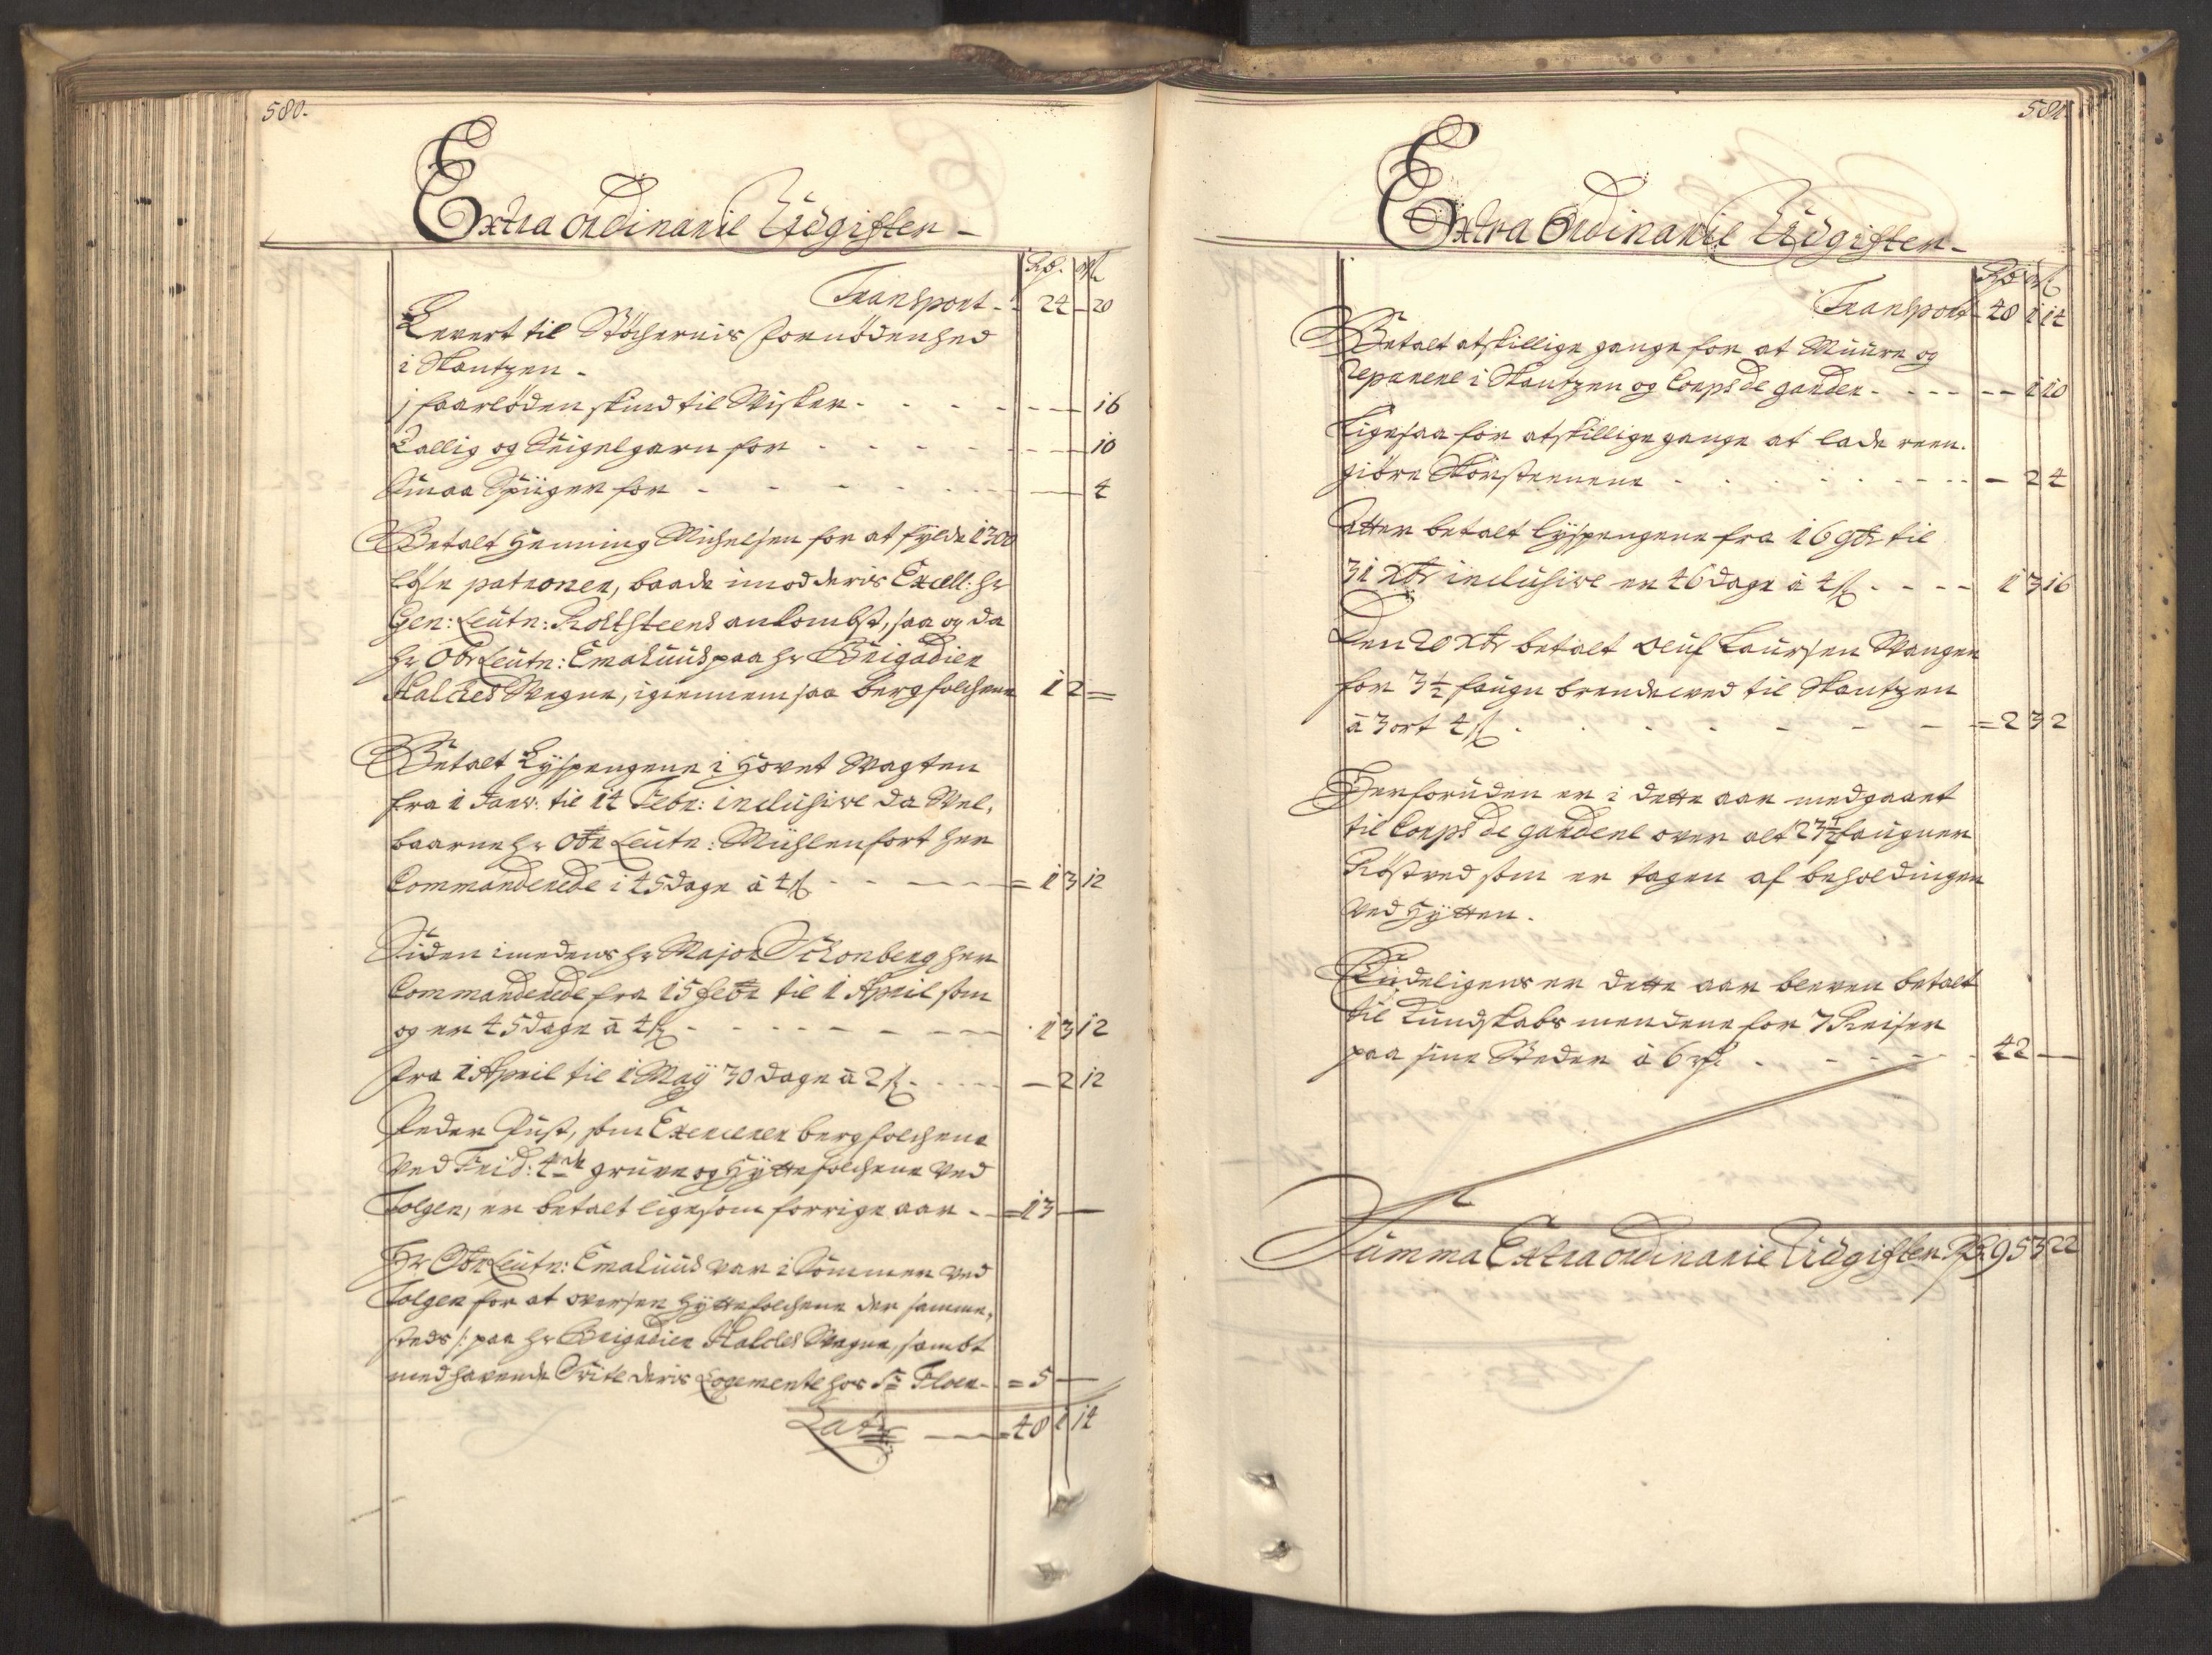 580.
Extra Ordinarie Udgifter
Rd. ort ß
Transport - 24 - 20
Levert til Støchernis fornødenhed
i Skantzen -
1 faarløden skind til Visker - - - - - - 16
Lallig og Seigelgarn for - - - - - - 10
Smaa Spiiger for - - - - - - 4
Betalt Henning Michelsen for at fylde 1300
løse patroner, baade imod deris Excell: Hr
Gen: Leutn: Roltsteens ankombst, saa og da
Hr Obr Leutn: Emahuus paa Hr Brigadier
Kalches Vegne, igiennemsaa bergfolchene 1 2 =
Betalt Lyspengene i Hovet Vagten
fra 1 Janv: til 14 Febr: inclusive da Vel,
baarne Hr Obr Leutn: Mühlenfort her
Commanderede i 45 dage à 4 ß - - - = 1 3 12
Siden imedens Hr Major Schonberg her
Commanderede fra 15 Febr til 1 April som
og er 45 dage à 4 ß - - - - - 1 3 12
fra 1 April til 1 Maÿ 30 dage à 2 ß - - - - 2 12
Peder Just, som Exercerer bergfolchene
ved Frid: 4de gruve og Hÿttefolchene ved
Tolgen, er betalt ligesom forrige aar - = 13 -
Hr Obr Leutn: Emahuus var i Sommer ved
Tolgen for at oversee Hÿttefolchene der samme,
steds /: paa Hr Brigadier Kalches Vegne, sambt
medhavende Suite deris Logemente hos Sr Floer - = 5 -
Latr - = 48 1 14
581.
Extra Ordinarie Udgifter
Rd ort ß
Transport - 48 1 14
Betalt atskillige gange for at Muure og
reparere i Skantzen og Corps de garder - - - - - 1 10
Ligesaa for atskillige gange at lade reen-
giøre Skorsteenene - - - - - - 2 4
Atter betalt Lyspengene fra 16 9br til
31 Xbr inclusive er 46 dage à 4 ß - - - - 1 3 16
Den 20 Xbr betalt Oluf Laursen Vangen
for 3½ faugn brendeved til Skantzen
à 3 ort 4 ß - - - - - = 2 3 2
Herforuden er i dette aar medgaaet
til Corps de garderne over alt 23½ faugner
Røstved som er tagen af beholdingen
ved Hÿtten.
Endeligens er dette aar bleven betalt
til Kundskabs mendene for 7 Reiser
paa sine Steder à 6 rd. - - - - 42 -
Summa Extraordinarie Udgifter Rd. 95 3 22